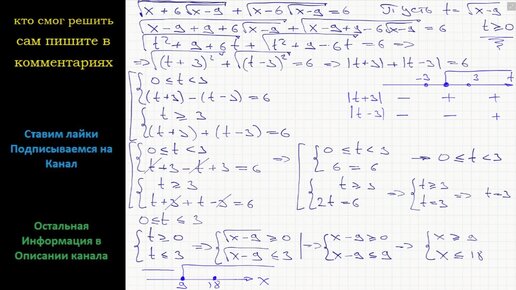 кто смог решить
сам пишите в
комментариях
Ставим лайки
Подписываемся на
Канал
Остальная
Информация в
Описании канала
√(x+6√(x-9)) + √(x-6√(x-9)) = 6 Пусть t=√(x-9)
√(x-9+9+6√(x-9)) + √(x-9+9-6√(x-9)) = 6 t≥0
√(t²+9+6t) + √(t²+9-6t) = 6 =>
=> √(t+3)² + √(t-3)² = 6 => |t+3| + |t-3| = 6
0≤t<3
(t+3)-(t-3)=6
t≥3
(t+3)+(t-3)=6
-3 3 t
|t+3| - + +
|t-3| - - +
0≤t<3
t+3-t+3=6
t≥3
t+3+t-3=6
=> 0≤t<3
6=6
0≤t<3
t≥3
2t=6
=> t≥3
t=3
=> t=3
0≤t≤3
t≥0
t≤3
=> √(x-9)≥0
√(x-9)≤3
=> x-9≥0
x-9≤9
=> x≥9
x≤18
9 18 x